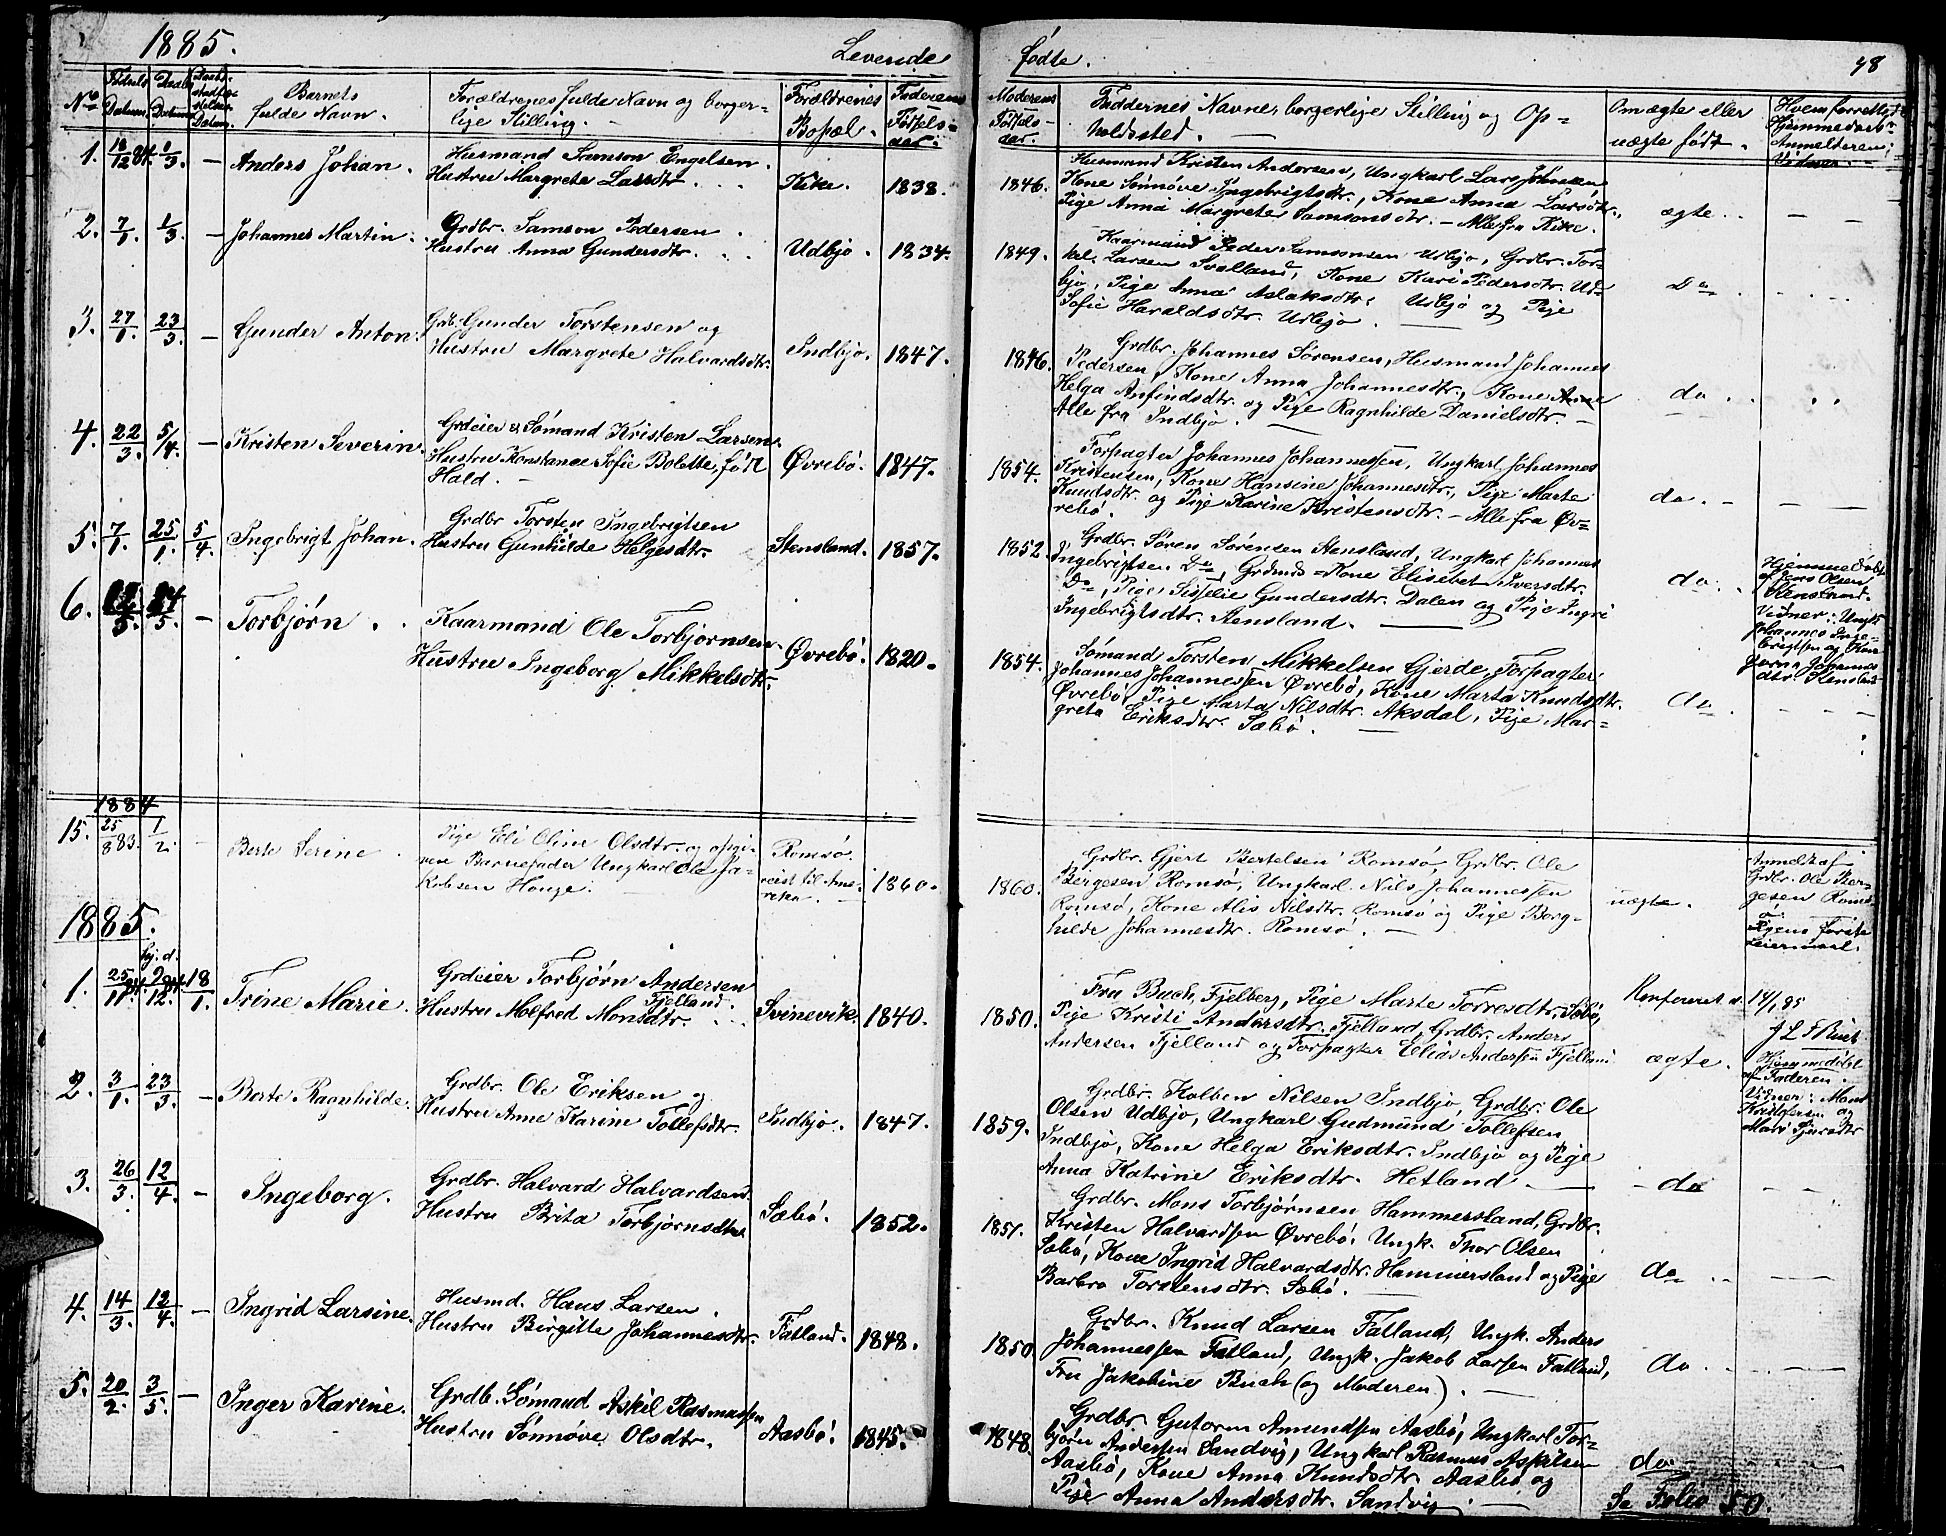 1885.
Levende
fødte.
48
No
Fødsels Datum.
Daabs Datum
Daabs- stadfæ- stelses Datum.
Barnets
fulde Navn.
Forældrenes fulde Navn og borger-
lige Stilling.
Forældrenes
Bopæl.
Faderens
Fødsels-
aar.
Moderens
Fødsels-
aar.
Faddernes Navne, borgerlige Stilling og Op-
holdssted.
Om ægte eller
uægte født.
1. 84. 1/3 — Anders Johan.
Husmand Samson Engelsen.
Hustru Margrete Larsdtr.
Kike. 1838.
1846.
Husmand Kristen Andersen, Ungkarl Lars Johnsen
Kone Sønnøve Ingebrigtsdtr., Kone Anna Larsdtr.,
Pige Anna Margrete Samsonsdtr. — Alle fra Kike.
ægte. — —
2. 7/1. 1/3. — Johannes Martin.
Grdbr. Samson Pedersen
Hustru Anna Gundersdtr.
Udbjo. 1834.
1849.
Kaarmand Peder Samsonsen Udbjo, Grdbr. Tor-
kel Larsen Svalland, Kone Kari Pedersdtr. Ud-
bjo, Pige Anna Aslaksdtr. Udbjo og Pige
Sofie Haraldsdtr. Udbjo.
Do
3. 27/1. 23/3. — Gunder Anton.
Grdb. Gunder Torstensen og
Hustru Margrete Halvardsdtr.
Indbjo. 1847.
1846.
Grdbr. Johannes Sørensen, Husmand Johannes
Pedersen, Kone Anna Johannesdtr., Kone Anne
Helga Anfindsdtr. og Pige Ragnhilde Danielsdtr. —
Alle fra Indbjo.
do
4. 22/3. 5/4. — Kristen Severin.
Grdeier & Sømand Kristen Larsen.
Hustru Konstance Sofie Bolette, født
Hald. —
Øvrebø. 1847.
1854.
Forpagter Johannes Johannessen, Ungkarl Johannes
Kristensen, Kone Hansine Johannesdtr., Pige Marte
Knudsdtr. og Pige Karine Kristensdtr. — Alle fra Øv-
rebø.
do. —
5. 7/1. 25/1. 5/4. Ingebrigt Johan.
Grdbr Torsten Ingebrigtsen
Hustru Gunhilde Helgesdtr.
Stensland. 1857.
1852.
Grdbr. Søren Sørensen Stensland, Ungkarl Johannes
Ingebrigtsen Do, Grdmds-Kone Elisebet Iversdtr.
Do, Pige Sissele Gundersdtr. Dalen og Pige Ingri
Ingebrigtsdtr. Stensland.
do.
Hjemmedøbt
af Jens Olsen
Stensland.
Vidner: Ungk
Johannes Inge-
brigtsen og Kone
Johannes
dtr. Stensland
6. — Torbjørn.
Kaarmand Ole Torbjørnsen.
Hustru Ingeborg Mikkelsdtr.
Øvrebø. 1820.
1854.
Sømand Torsten Mikkelsen Gjerde, Forpagter
Johannes Johannessen Øvrebø, Kone Marta Knudsdtr.
Øvrebø, Pige Marta Nilsdtr. Aksdal, Pige Mar-
greta Eriksdtr. Sæbø.
do.
1884
15. 25/8 83. 1/2. Berte Serine
Pige Eli Oline Olsdtr. og opgi-
ven Barnefader Ungkarl Ole Ja-
kobsen Houge.
Romsø.
reist til Ame-
rika. —
1860.
1860.
Grdbr. Gjert Bertelsen Romsø, Grdbr. Ole
Børgesen Romsø, Ungkarl Nils Johannessen
Romsø, Kone Alis Nilsdtr. Romsø og Pige Borg-
hilde Johannesdtr. Romsø. —
uægte.
Anmeldt af
Grdbr. Ole Bør-
gesen Roms-
ø.
Pigens første
Leiermaal.
1885.
hj. d.
1. 25/11. 84. 9/12. 84. 18/1. Trine Marie.
Grdeier Torbjørn Andersen
Fjelland.
Hustru Molfred Monsdtr.
Svinevik. 1840.
1850.
Fru Buch, Fjelberg, Pige Marte Torresdtr. Sæbø,
Pige Kristi Andersdtr. Fjelland, Grdbr. Anders
Andersen Fjelland og Forpagter Elias Andersen Fjelland
Konfereret d. 14/1 85
ægte.
Hjemmedøbt
af Faderen.
Vidner: Mons
Kristofersen og
2. 3/1. 23/3. — Berte Ragnhilde.
Grdbr. Ole Eriksen og
Hustru Anne Karine Tollefsdtr.
Indbjo. 1847.
1859.
Grdbr. Kolben Nilsen Indbjo, Grdbr. Ole
Olsen Udbjo, Ungkarl Gudmund Tollefsen
Indbjo, Kone Helga Eriksdtr. Indbjo og Pige
Anna Katrine Eriksdtr. Hetland. —
do
3. 26/3. 12/4. — Ingeborg.
Grdbr. Halvard Halvardsen
Hustru Brita Torbjørnsdtr
Sæbø. 1852.
1851.
Grdbr. Mons Torbjørnsen Hammersland, Grdbr.
Kristen Halvardsen Øvrebø, Ungk. Thor Olsen
Sæbø, Kone Ingrid Halvardsdtr. Hammersland og Pige
Barbro Torstensdtr. Sæbø.
do
4. 14/3. 12/4. — Ingrid Larsine.
Husmd. Hans Larsen.
Hustru Birgitte Johannesdtr.
Fatland. 1848.
1850
Grdbr. Knud Larsen Fatland, Ungk. Anders
Johannessen Fatland, Ungk. Jakob Larsen Fatland,
Fru Jakobine Buch (og Moderen).
do.
5. 20/2. 3/5. — Inger Karine.
Grdb. Sømand Askil Rasmussen
Hustru Sønnøve Olsdtr.
Aasbø. 1845.
1848.
Grdbr. Gutorm Amundsen Aasbø, Ungkarl Tor-
bjørn Andersen Sandvig, Ungkarl Rasmus Askilsen
Aasbø, Kone Anna Knudsdtr. Aasbø og
Pige Anna Andersdtr. Sandvig.
do.
Se Folio 50.